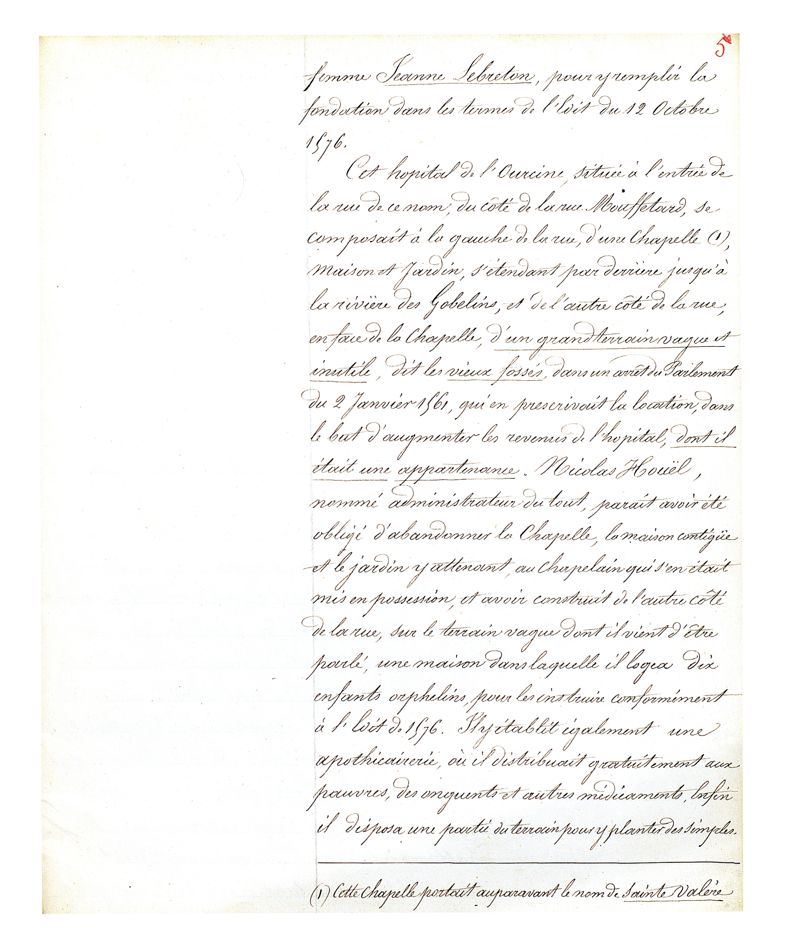 5
femme Jeanne Lebreton, pour y remplir la
fondation dans les termes de l'Édit du 12 Octobre
1576.
Cet hopital de l'Ourcine, située à l'entrée de
la rue de ce nom, du côté de la rue Mouffetard, se
composait à la gauche de la rue, d'une Chapelle (1),
Maison et Jardin, s'étendant par derrière jusqu'à
la rivière des Gobelins, et de l'autre côté de la rue,
en face de la Chapelle, d'un grand terrain vague et
inutile, dit les vieux fossés, dans un arrêt du Parlement
du 2 Janvier 1561, qui en prescrivait la location, dans
le but d'augmenter les revenus de l'hopital, dont il
était une appartenance. Nicolas Houël,
nommé administrateur du tout, parait avoir été
obligé d'abandonner la Chapelle, la maison contigüe
et le jardin y attenant, au Chapelain qui s'en était
mis en possession, et avoir construit de l'autre côté
de la rue, sur le terrain vague dont il vient d'être
parlé, une maison dans laquelle il logea dix
enfants orphelins, pour les instruire conformément
à l'Édit de 1576. Il y établit également une
apothicairerie, où il distribuait gratuitement aux
pauvres, des onguents et autres médicaments, Enfin
il disposa une partie du terrain pour y planter des simples.
(1) Cette Chapelle portait auparavant le nom de Sainte Valère